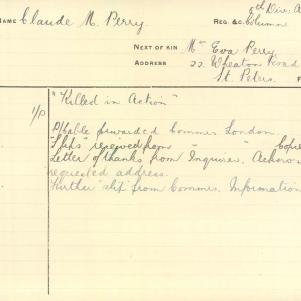 NAME Claude M. Perry
5th Div: A
REG. &C. Column
NEXT OF KIN Mrs Eva Perry
ADDRESS 22 Wheaton Road
St. Peters F
"Killed in Action"
1/P
P/Cable forwarded Commrs London.
"Slips" received from " " Copie
Letter of thanks from Inquirer. Acknow
requested address.
"Further" slip from Commrs. Information